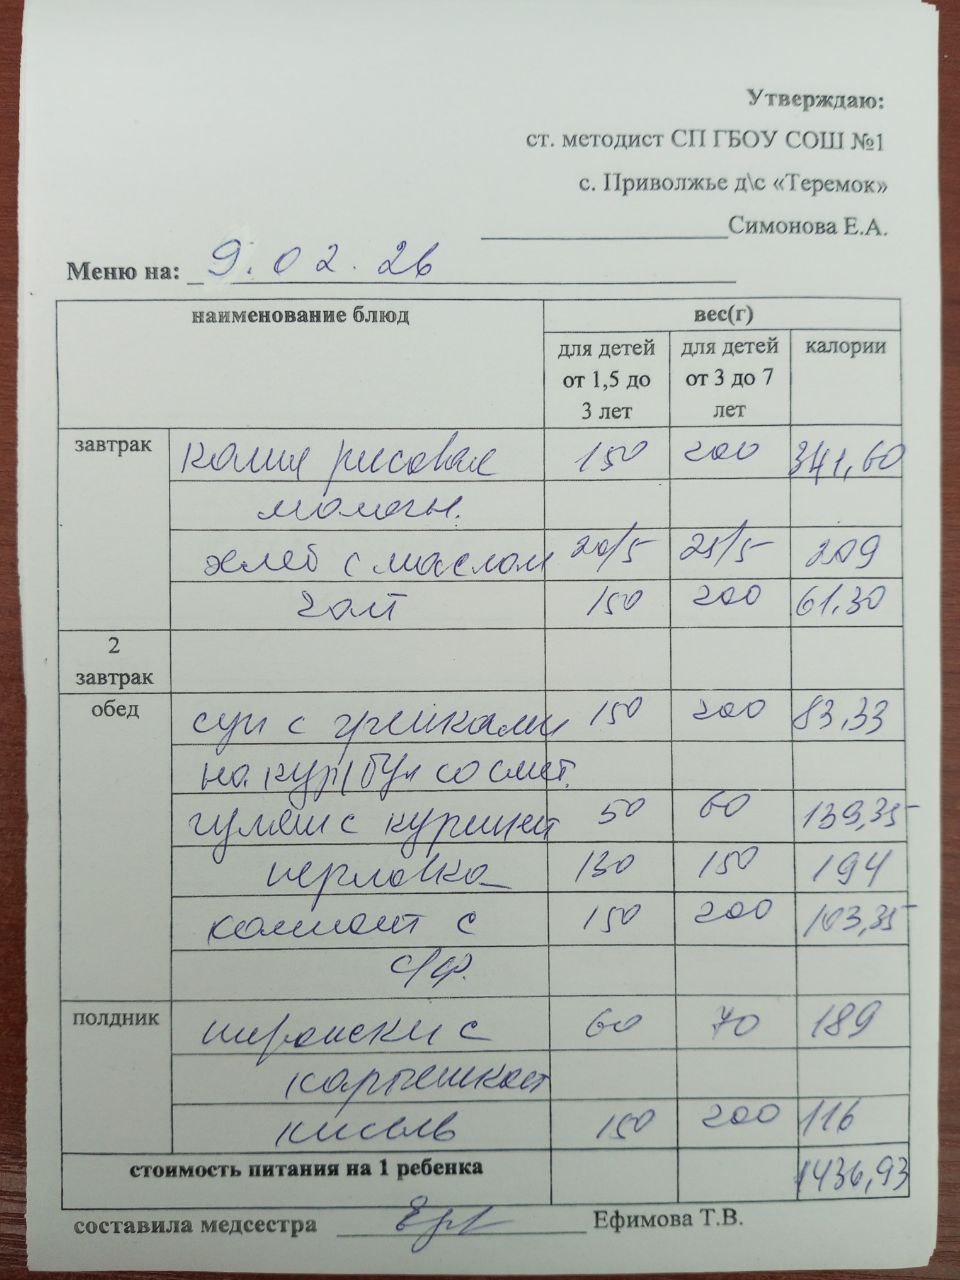 Утверждаю:
ст. методист СП ГБОУ СОШ №1
с. Приволжье д\с «Теремок»
Симонова Е.А.
Меню на: 9.02.26
наименование блюд вес(г)
для детей от 1,5 до 3 лет для детей от 3 до 7 лет калории
завтрак каша рисовая 150 200 341,60
молочн.
хлеб с маслом 20/5 25/5 209
чай 150 200 61,30
2 завтрак
обед суп с гренками 150 200 83,33
на кур/бул со смет.
гуляш с курицей 50 60 139,35
перловка 130 150 194
компот с 150 200 103,35
с/ф.
полдник пирожки с 60 70 189
картошкой
кисель 150 200 116
стоимость питания на 1 ребенка 1436,93
составила медсестра Ефимова Т.В.